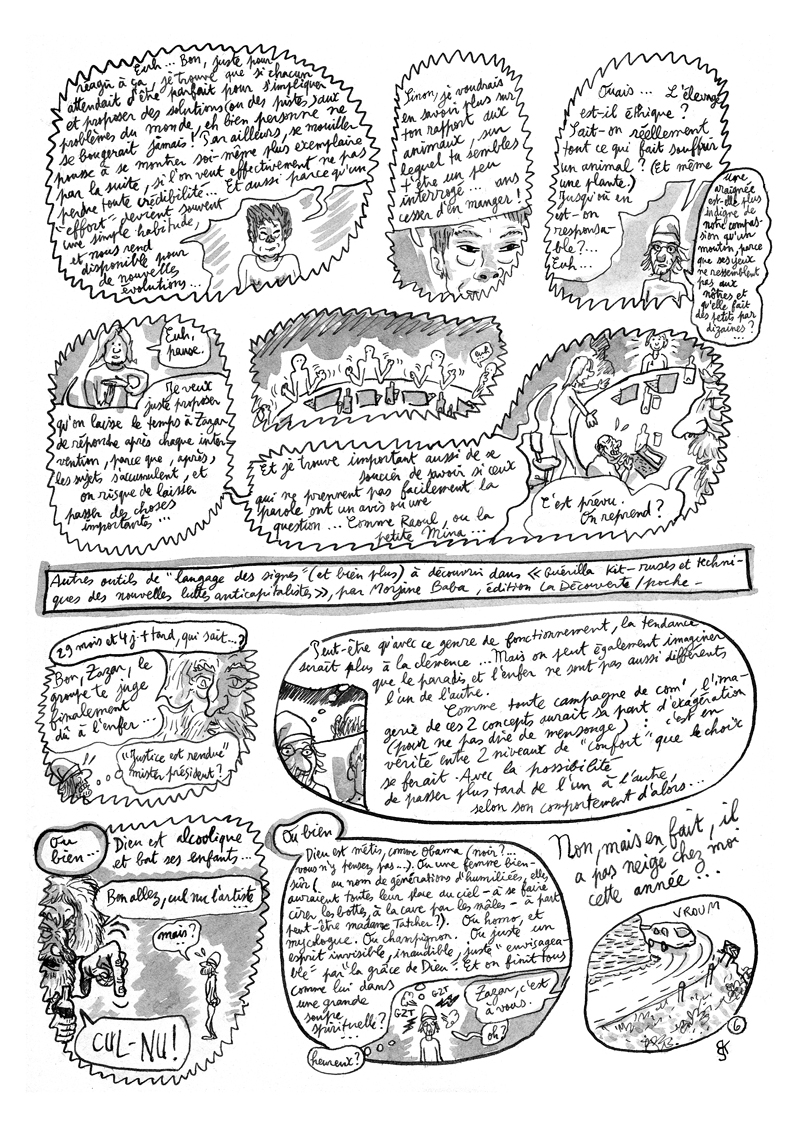 Euh... Bon, juste pour
réagir à ça, je trouve que si chacun
attendait d'être parfait pour s'impliquer
et proposer des solutions (ou des pistes) aux
problèmes du monde, eh bien personne ne
se bougerait jamais ! Par ailleurs, se mouiller
pousse à se montrer soi-même plus exemplaire
par la suite, si l'on veut effectivement ne pas
perdre toute crédibilité... Et aussi parce qu'un
"effort" devient souvent
une simple habitude,
et nous rend
disponible pour
de nouvelles
évolutions...
Sinon, je voudrais
en savoir plus sur
ton rapport aux
animaux, sur
lequel tu sembles
t'être un peu
interrogé... sans
cesser d'en manger !
Ouais... L'élevage
est-il éthique ?
Sait-on réellement
tout ce qui fait souffrir
un animal ? (Et même
une plante.)
Jusqu'où en
est-on
responsa-
ble ?...
Euh...
Une
araignée
est-elle plus
indigne de
notre compas-
sion qu'un
mouton, parce
que ses yeux
ne ressemblent
pas aux
nôtres et
qu'elle fait
des petits par
dizaines
... ?
Euh,
pause.
Je veux
juste proposer
qu'on laisse le temps à Zazar
de répondre après chaque inter-
vention, parce que, après,
les sujets s'accumulent, et
on risque de laisser
passer des choses
importantes...
euh
Et je trouve important aussi de se
soucier de savoir si ceux
qui ne prennent pas facilement la
parole ont un avis ou une
question... Comme Raoul, ou la
petite Mina...
C'est prévu.
On reprend ?
Autres outils de "langage des signes" (et bien plus) à découvrir dans « Guérilla Kit - ruses et techni-
ques des nouvelles luttes anticapitalistes », par Morjane Baba, édition La Découverte / poche -
29 mois et 4 j. + tard, qui sait...?
Bon, Zazar, le
groupe te juge
finalement
dû à l'enfer...
"Justice est rendue"
mister président !
Peut-être qu'avec ce genre de fonctionnement, la tendance
serait plus à la clémence... Mais on peut également imaginer
que le paradis et l'enfer ne sont pas aussi différents
l'un de l'autre.
Comme toute campagne de com', l'ima-
gerie de ces 2 concepts aurait sa part d'exagération
(pour ne pas dire de mensonge) : c'est en
vérité entre 2 niveaux de "confort" que le choix
se ferait. Avec la possibilité
de passer plus tard de l'un à l'autre,
selon son comportement d'alors...
Ou
bien...
Dieu est alcoolique
et bat ses enfants...
Bon allez, cul nu l'artiste
mais ?
CUL-NU !
Ou bien
Dieu est métis, comme Obama (noir ?...
vous n'y pensez pas...). Ou une femme bien-
sûr (au nom de générations d'humiliées, elles
auraient toutes leur place au ciel - à se faire
cirer les bottes, à la cave par les mâles - à part
peut-être madame Tatcher ?). Ou homo, et
mycologue. Ou champignon. Ou juste un
esprit invisible, inaudible, juste "envisagea-
ble" par "la grâce de Dieu". Et on finit tous
comme lui dans
une grande
soupe
spirituelle ?
...
heureux ?
GZT
GZT
Zazar, c'est
à vous.
oh?
Non, mais en fait, il
a pas neigé chez moi
cette année...
VROUM
6